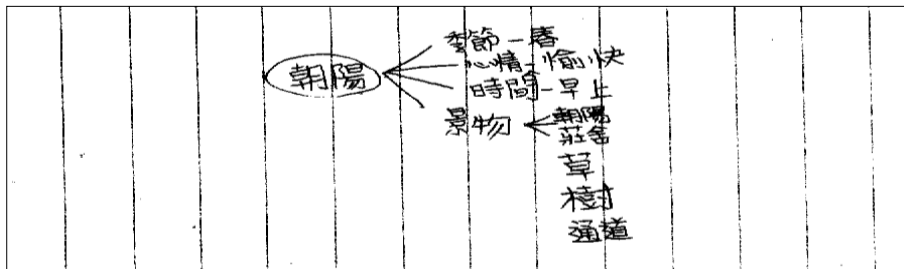 朝陽
季節-春
心情-愉快
時間-早上
景物
朝陽
莊舍
草
樹
通道